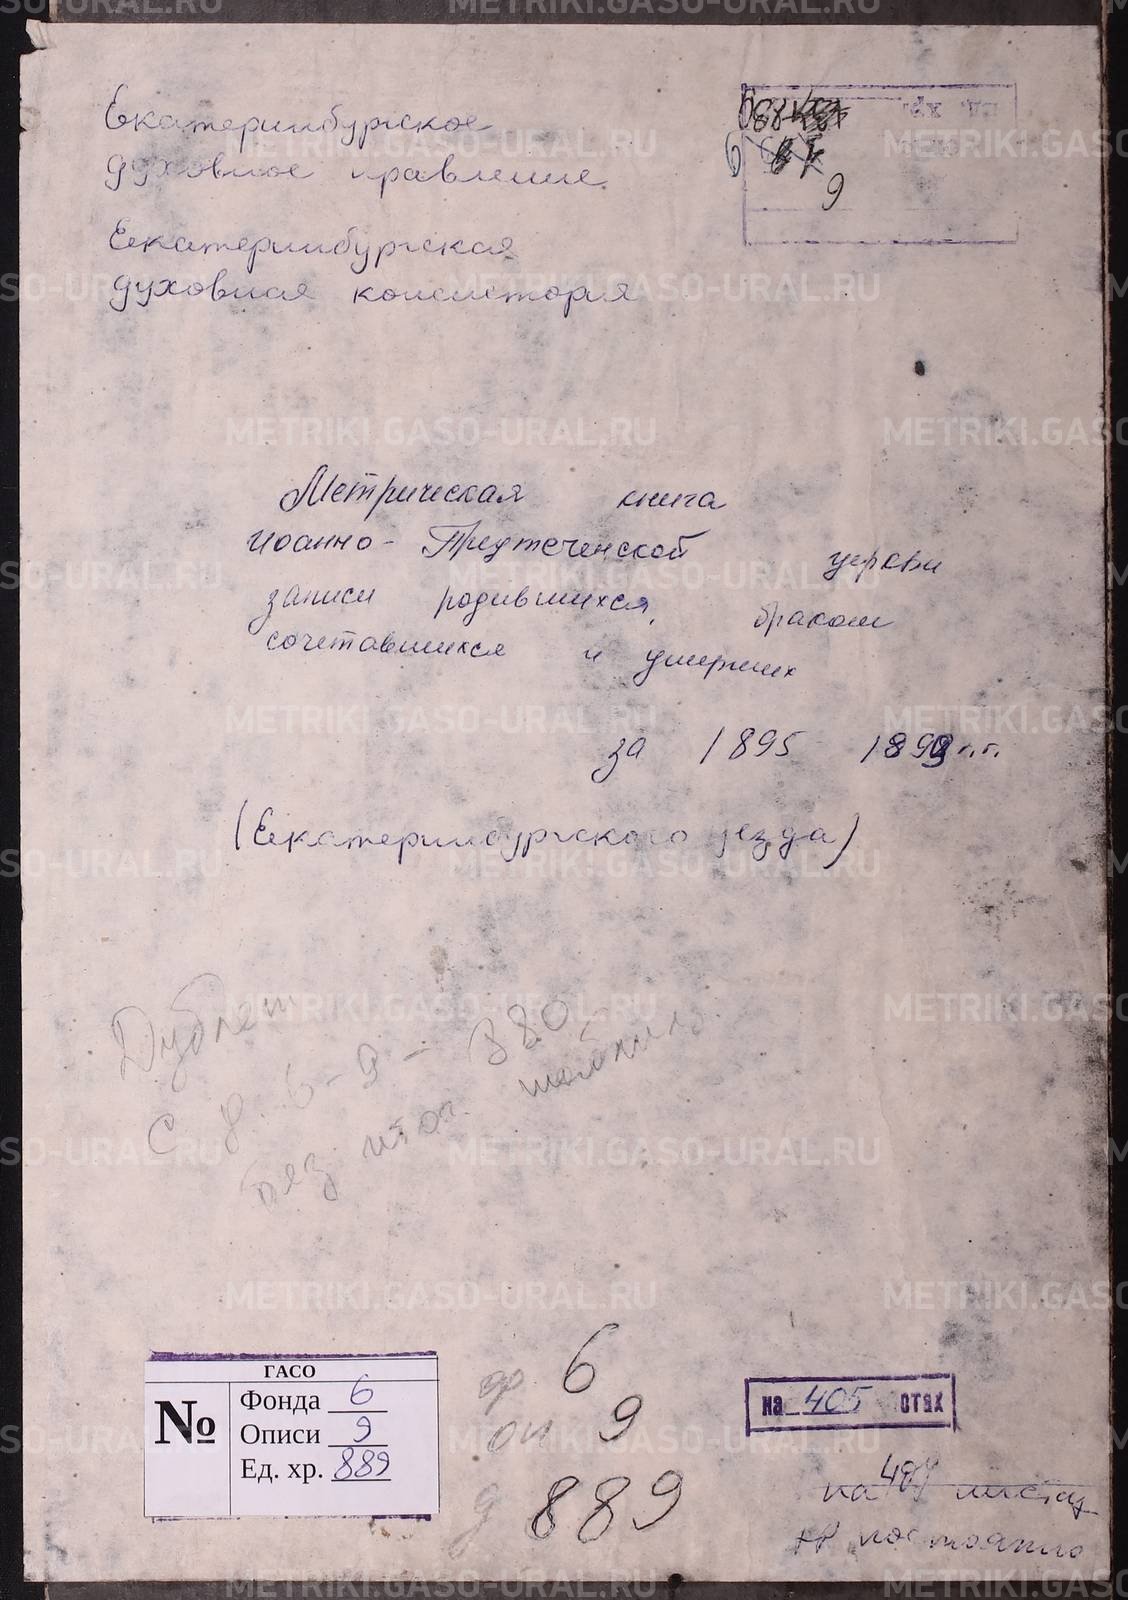 Екатеринбургское
духовное правление
Екатеринбургская
духовная консистория
Метрическая книга
иоанно-Предтеченской церкви
записи родившихся, браком
сочетавшихся и умерших
за 1895 1899 г.г.
(Екатеринбургского уезда)
Дублет
С ф. 6-9-880
без
ГАСО
№
Фонда 6
Описи 9
Ед. хр. 889
ф 6
оп 9
д 889
на 405 стах
на листах
постоянно
METRIKI.GASO-URAL.RU